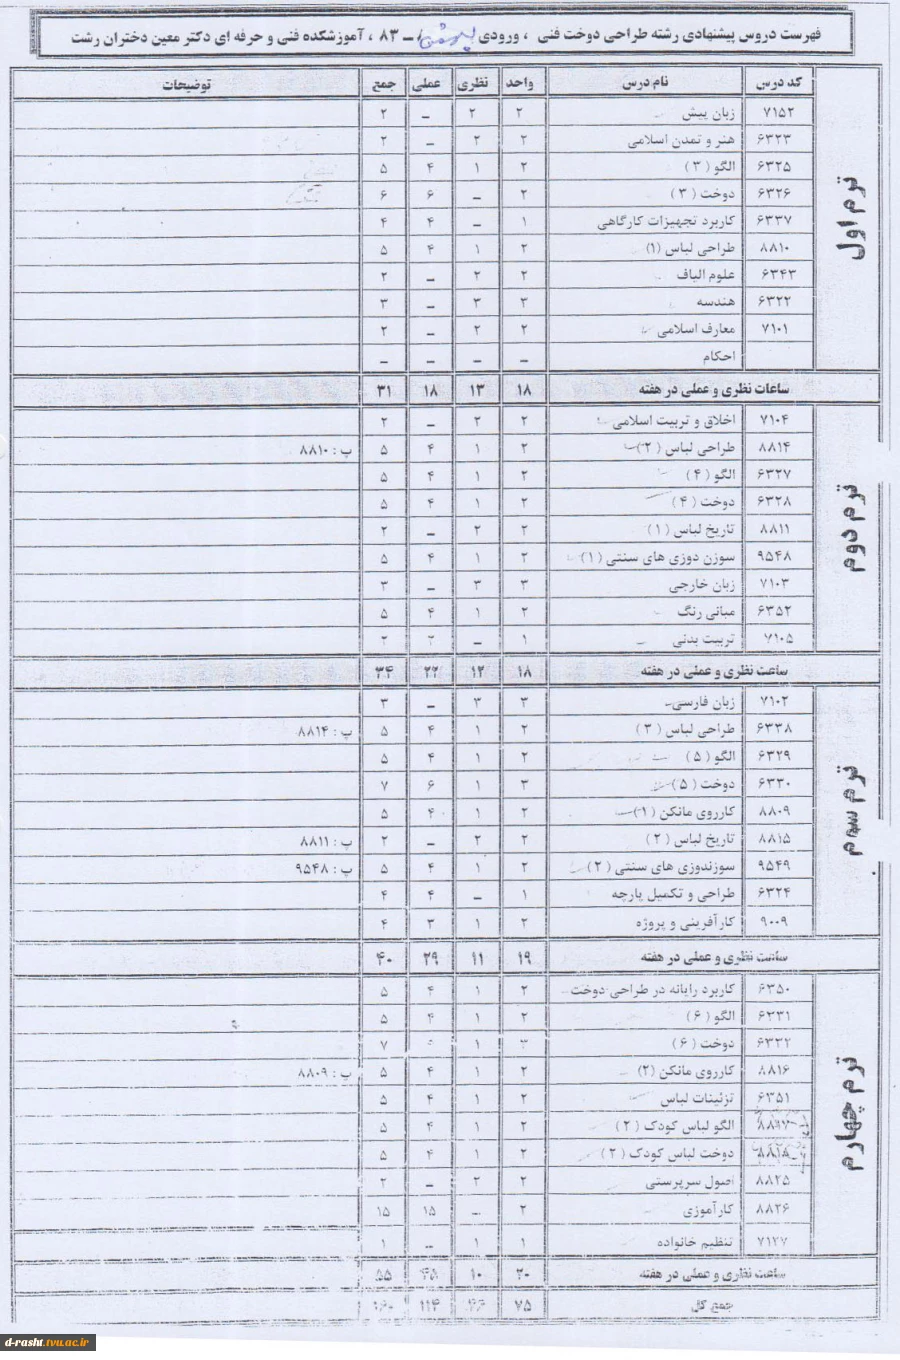 فهرست دروس پیشنهادی رشته طراحی دوخت فنی ، ورودی ـ ۸۳ ، آموزشکده فنی و حرفه ای دکتر معین دختران رشت
کد درس نام درس واحد نظری عملی جمع توضیحات
ترم اول
۷۱۵۲ زبان پیش ۲ ۲ ـ ۲
۶۳۲۳ هنر و تمدن اسلامی ۲ ۲ ـ ۲
۶۳۲۵ الگو ( ۳ ) ۲ ۱ ۴ ۵
۶۳۲۶ دوخت ( ۳ ) ۲ ـ ۶ ۶
۶۳۳۷ کاربرد تجهیزات کارگاهی ۱ ـ ۴ ۴
۸۸۱۰ طراحی لباس (۱) ۲ ۱ ۴ ۵
۶۳۴۳ علوم الیاف ۲ ۲ ـ ۲
۶۳۲۲ هندسه ۳ ۳ ـ ۳
۷۱۰۱ معارف اسلامی ۲ ۲ ـ ۲
احکام ـ ـ ـ ـ
ساعات نظری و عملی در هفته ۱۸ ۱۳ ۱۸ ۳۱
ترم دوم
۷۱۰۴ اخلاق و تربیت اسلامی ۲ ۲ ـ ۲
۸۸۱۴ طراحی لباس ( ۲ ) ۲ ۱ ۴ ۵ پ : ۸۸۱۰
۶۳۲۷ الگو ( ۴ ) ۲ ۱ ۴ ۵
۶۳۲۸ دوخت ( ۴ ) ۲ ۱ ۴ ۵
۸۸۱۱ تاریخ لباس ( ۱ ) ۲ ۲ ـ ۲
۹۵۴۸ سوزن دوزی های سنتی ( ۱ ) ۲ ۱ ۴ ۵
۷۱۰۳ زبان خارجی ۳ ۳ ـ ۳
۶۳۵۲ مبانی رنگ ۲ ۱ ۴ ۵
۷۱۰۵ تربیت بدنی ۱ ـ ۲ ۲
ساعت نظری و عملی در هفته ۱۸ ۱۲ ۲۲ ۳۴
ترم سوم
۷۱۰۲ زبان فارسی ۳ ۳ ـ ۳
۶۳۳۸ طراحی لباس ( ۳ ) ۲ ۱ ۴ ۵ پ : ۸۸۱۴
۶۳۲۹ الگو ( ۵ ) ۲ ۱ ۴ ۵
۶۳۳۰ دوخت ( ۵ ) ۳ ۱ ۶ ۷
۸۸۰۹ کارروی مانکن ( ۱ ) ۲ ۱ ۴ ۵
۸۸۱۵ تاریخ لباس ( ۲ ) ۲ ۲ ـ ۲ پ : ۸۸۱۱
۹۵۴۹ سوزندوزی های سنتی ( ۲ ) ۲ ۱ ۴ ۵ پ : ۹۵۴۸
۶۳۲۴ طراحی و تکمیل پارچه ۱ ـ ۴ ۴
۹۰۰۹ کارآفرینی و پروژه ۲ ۱ ۳ ۴
ساعت نظری و عملی در هفته ۱۹ ۱۱ ۲۹ ۴۰
ترم چهارم
۶۳۵۰ کاربرد رایانه در طراحی دوخت ۲ ۱ ۴ ۵
۶۳۳۱ الگو ( ۶ ) ۲ ۱ ۴ ۵
۶۳۳۲ دوخت ( ۶ ) ۳ ۱ ۷
۸۸۱۶ کارروی مانکن (۲) ۲ ۱ ۴ ۵ پ : ۸۸۰۹
۶۳۵۱ تزئینات لباس ۲ ۱ ۴ ۵
الگو لباس کودک ( ۲ ) ۲ ۱ ۴ ۵
دوخت لباس کودک ( ۲ ) ۲ ۱ ۴ ۵
۸۸۲۵ اصول سرپرستی ۲ ۲ ـ ۲
۸۸۲۶ کارآموزی ۲ ـ ۱۵ ۱۵
۷۱۲۷ تنظیم خانواده ۱ ۱ ـ ۱
ساعت نظری و عملی در هفته ۲۰ ۱۰ ۴۵ ۵۵
جمع کل ۷۵ ۴۶ ۱۱۴ ۱۶۰
d-rasht.tvu.ac.ir